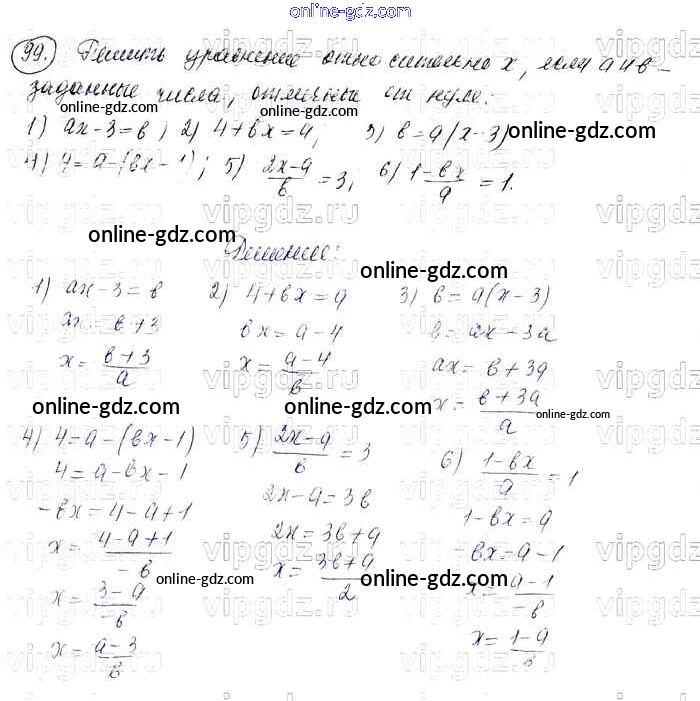 online-gdz.com
99. Решить уравнение относительно х, если а и в –
заданные числа, отличные от нуля:
online-gdz.com
1) ax-3=в; 2) 4+вx=а; 3) в=а(x-3)
online-gdz.com
4) 4=а-(вx-1); 5) (2x-а)/в=3; 6) (1-вx)/а=1.
online-gdz.com
Решение:
online-gdz.com
1) ax-3=в 2) 4+вx=а 3) в=а(x-3)
ax=в+3 вx=а-4 в=ax-3а
x=(в+3)/а x=(а-4)/в ax=в+3а
x=(в+3а)/а
online-gdz.com online-gdz.com online-gdz.com
4) 4=а-(вx-1) 5) (2x-а)/в=3 6) (1-вx)/а=1
4=а-вx-1 2x-а=3в 1-вx=а
-вx=4-а+1 2x=3в+а -вx=а-1
x=(4-а+1)/-в x=(3в+а)/2 x=(а-1)/-в
online-gdz.com online-gdz.com
x=(3-а)/-в x=(1-а)/в
x=(а-3)/в
online-gdz.com
vipgdz.ru